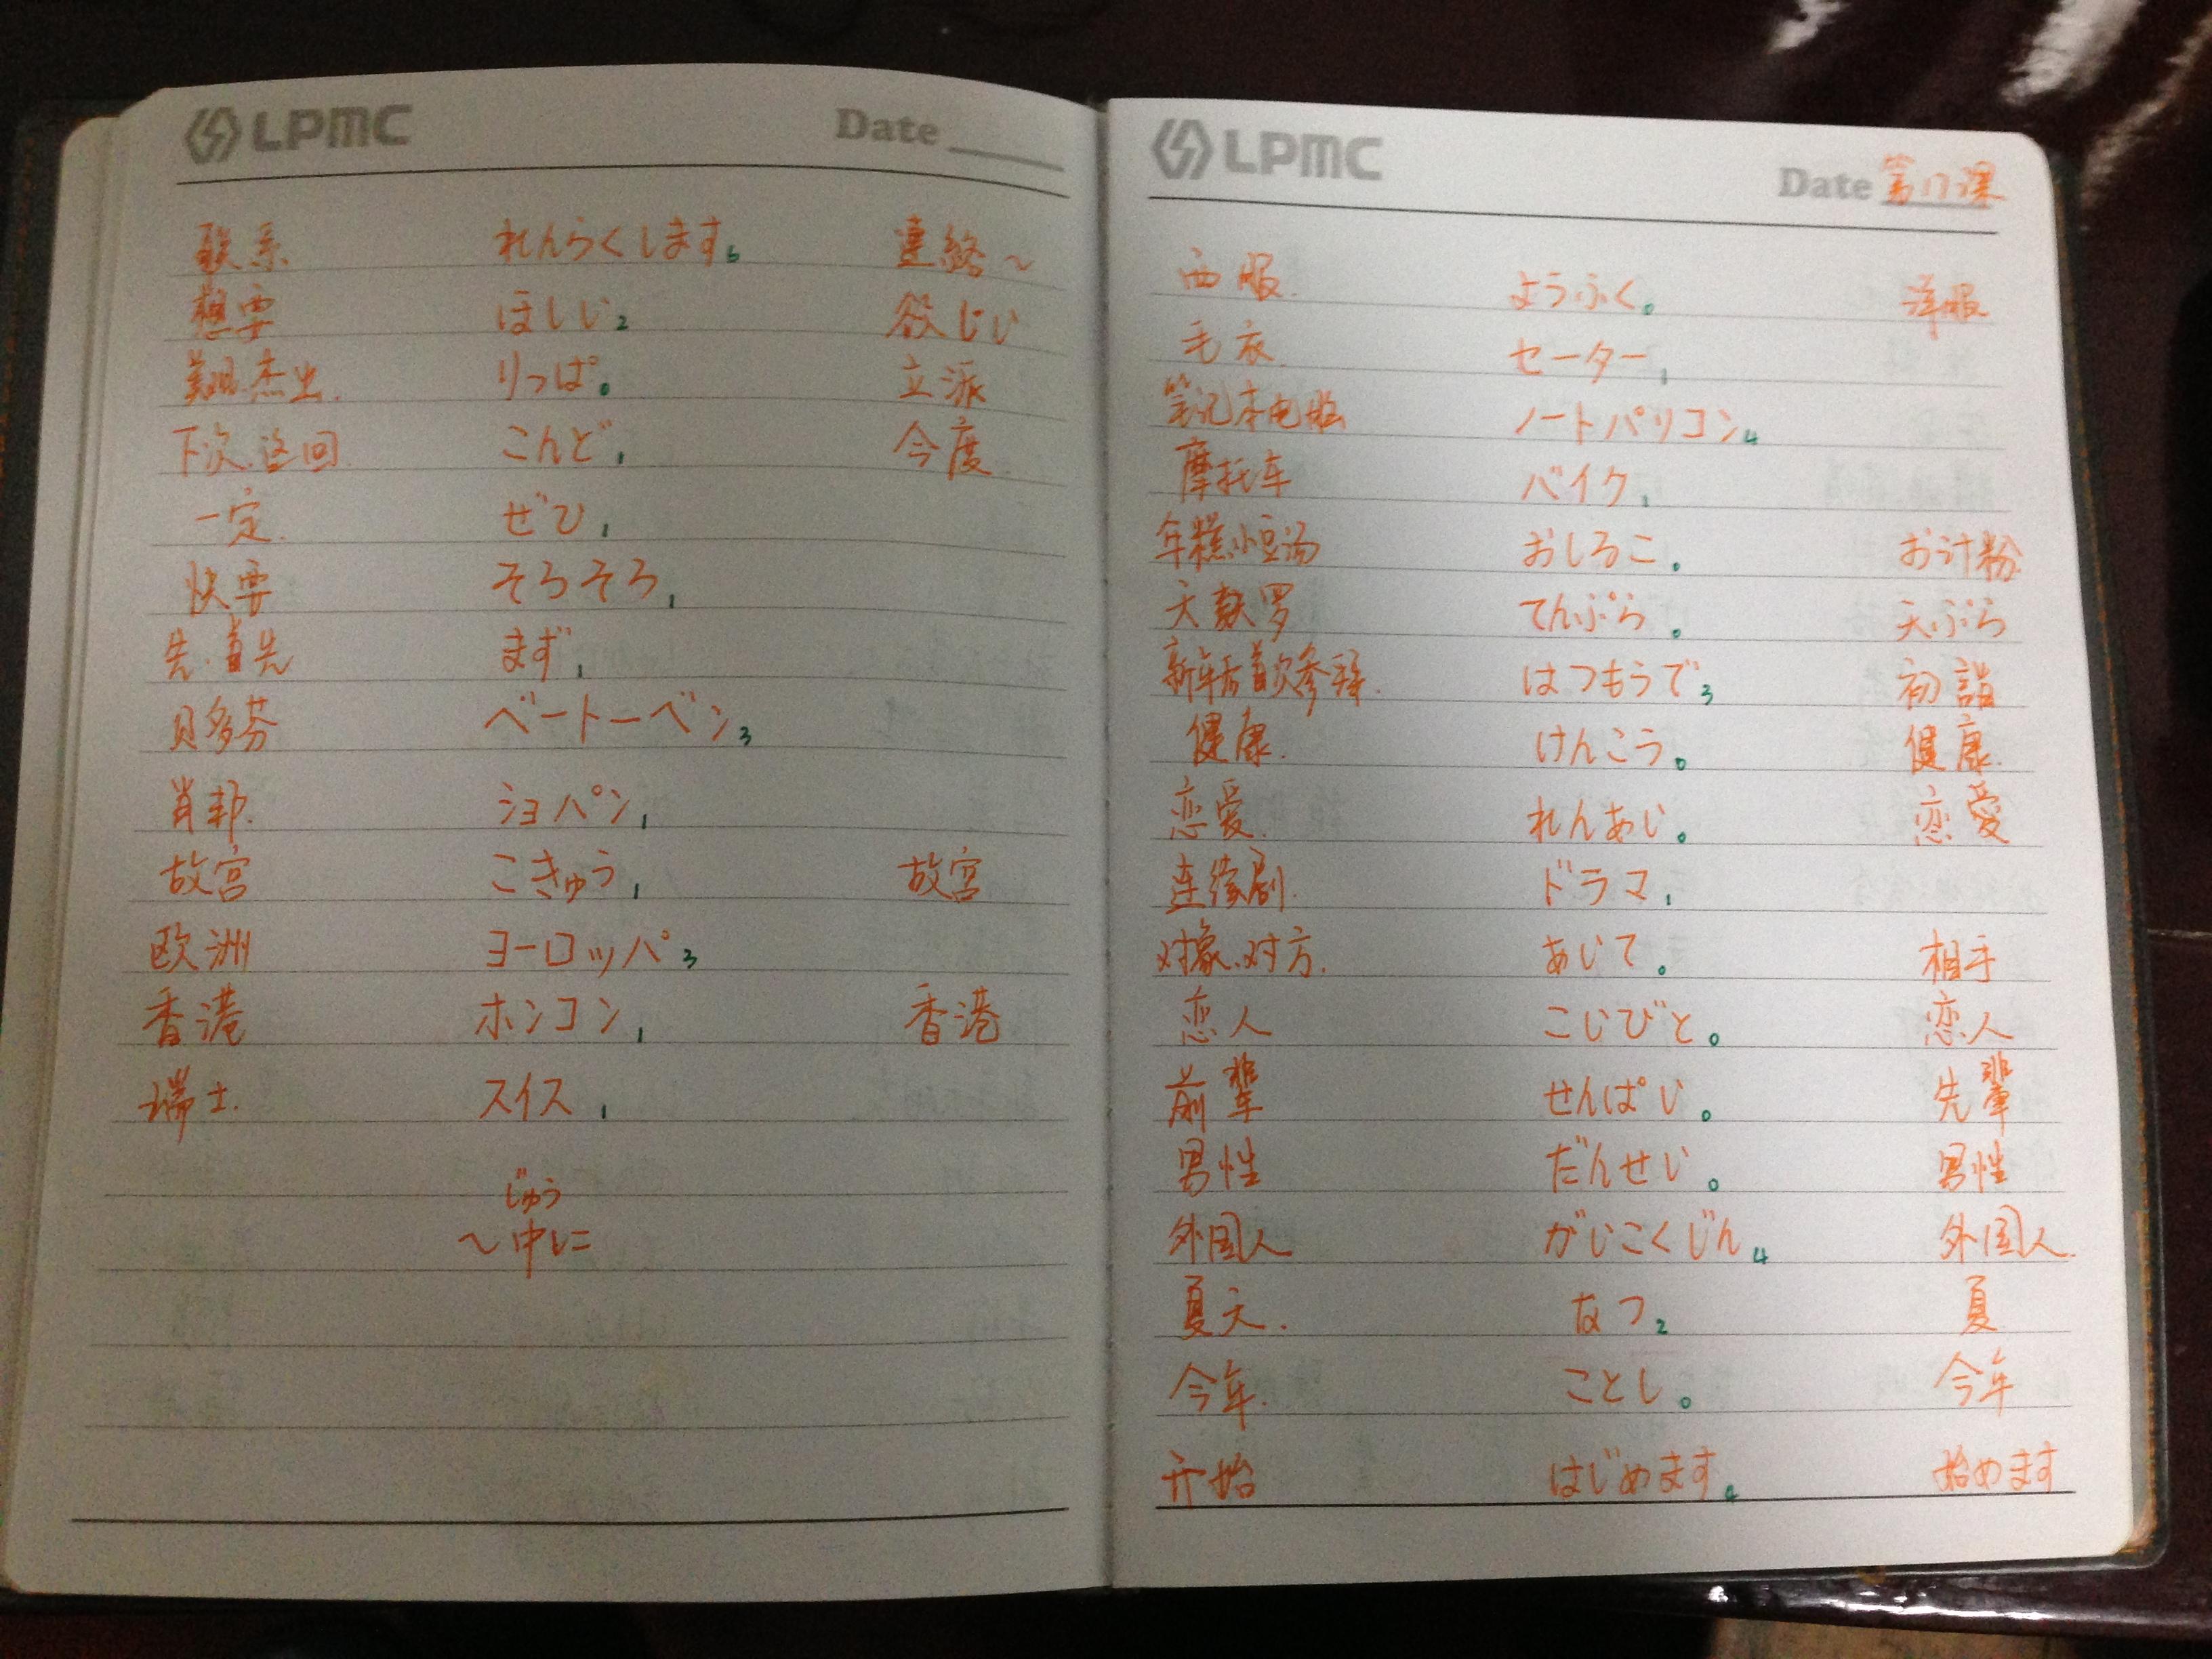 LPMC Date
联系 れんらくします6 連絡～
想要 ほしい2 欲しい
美观.杰出. りっぱ0 立派
下次.这回 こんど1 今度
一定. ぜひ1
快要 そろそろ1
先.首先 まず1
贝多芬 ベートーベン3
肖邦. ショパン1
故宫 こきゅう1 故宫
欧洲 ヨーロッパ3
香港 ホンコン1 香港
瑞士. スイス1
じゅう
～中に
LPMC Date 第17课
西服. ようふく0 洋服
毛衣. セーター1
笔记本电脑 ノートパソコン4
摩托车 バイク1
年糕小豆汤 おしるこ0 お汁粉
天麸罗 てんぷら0 天ぷら
新年后首次参拜. はつもうで3 初詣
健康. けんこう0 健康.
恋爱. れんあい0 恋愛
连续剧. ドラマ1
对象.对方. あいて0 相手
恋人 こいびと0 恋人
前辈 せんぱい0 先輩
男性 だんせい0 男性
外国人 がいこくじん4 外国人.
夏天. なつ2 夏
今年. ことし0 今年
开始 はじめます4 始めます